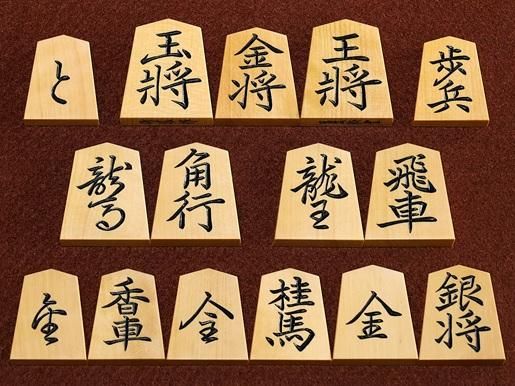 と 玉將 金将 王將 歩兵
龍馬 角行 龍王 飛車
金 香車 金 桂馬 金 銀将